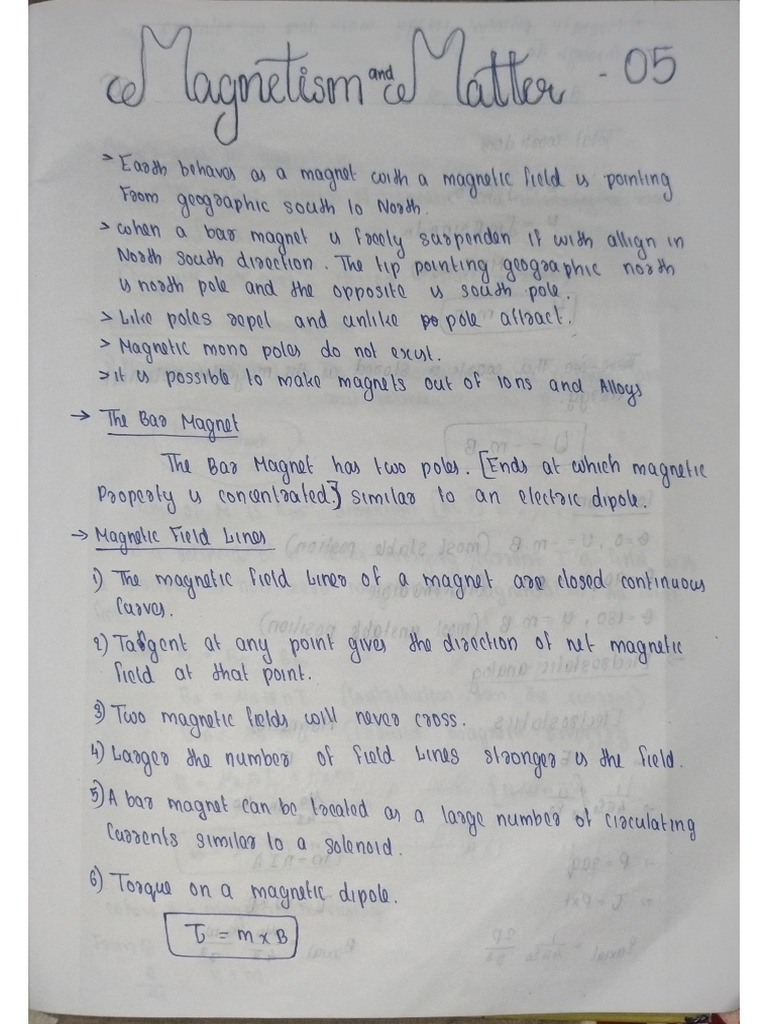 Magnetism and Matter - 05
> Earth behaves as a magnet with a magnetic field is pointing
From geographic south to North.
> when a bar magnet is freely suspenden it with allign in
North south direction. The tip pointing geographic north
is north pole and the opposite is south pole.
> Like poles repel and unlike pole attract.
> Magnetic mono poles do not exist.
> it is possible to make magnets out of Ions and Alloys
→ The Bar Magnet
The Bar Magnet has two poles. [Ends at which magnetic
Property is concentrated.] similar to an electric dipole.
→ Magnetic Field Lines
1) The magnetic field Lines of a magnet are closed continuous
Curves.
2) Tangent at any point gives the direction of net magnetic
field at that point.
3) Two magnetic fields will never cross.
4) Larger the number of field Lines stronger is the field.
5) A bar magnet can be treated as a large number of circulating
Currents similar to a solenoid.
6) Torque on a magnetic dipole.
τ = m × B